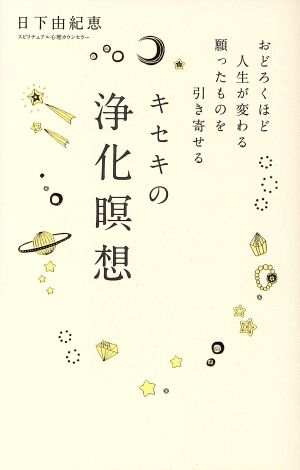 日下由紀恵
スピリチュアル心理カウンセラー
おどろくほど
人生が変わる
願ったものを
引き寄せる
キセキの
浄化瞑想